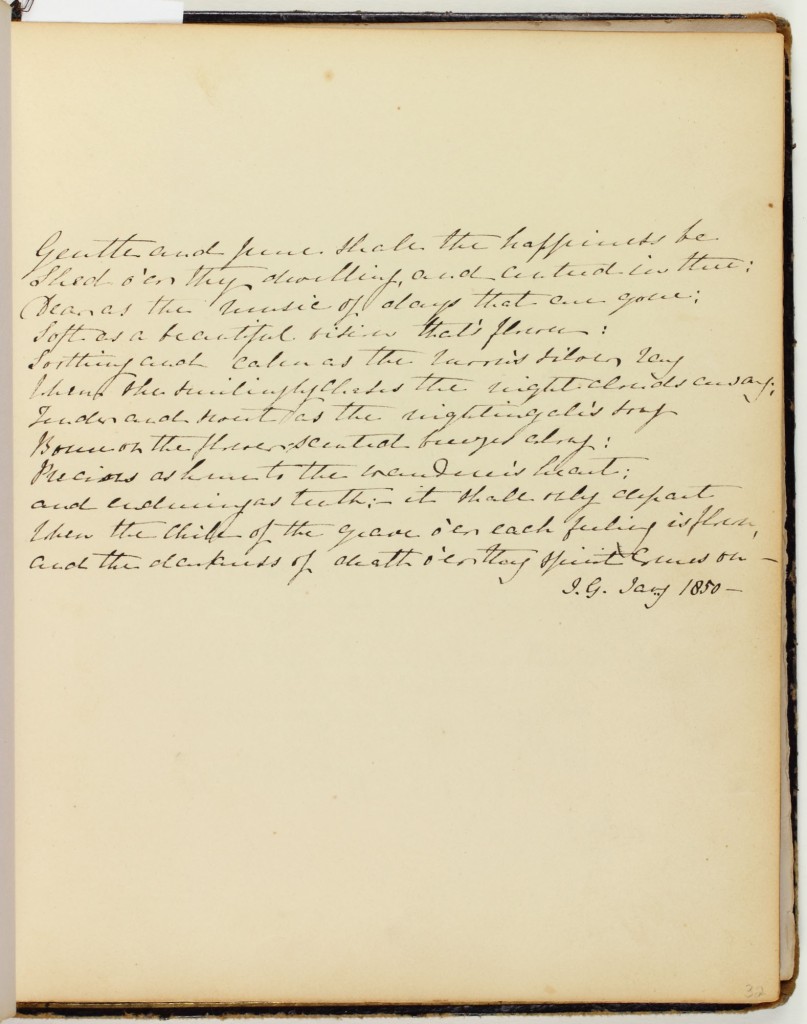 Gentle and pure shall the happiness be
Shed o'er thy dwelling, and centred in thee:
Dear as the music of days that are gone;
Soft as a beautiful vision that's flown:
Soothing and calm as the moon's silver ray
When she smilingly chases the night-clouds away;
Tender and sweet as the nightingale's song
Borne on the flower-scented breezes along:
Precious as home to the wanderer's heart;
and enduring as truth;- it shall only depart
When the chill of the grave o'er each feeling is flown,
and the darkness of death o'er thy spirit comes on -
J.G. Jany 1850 -
32